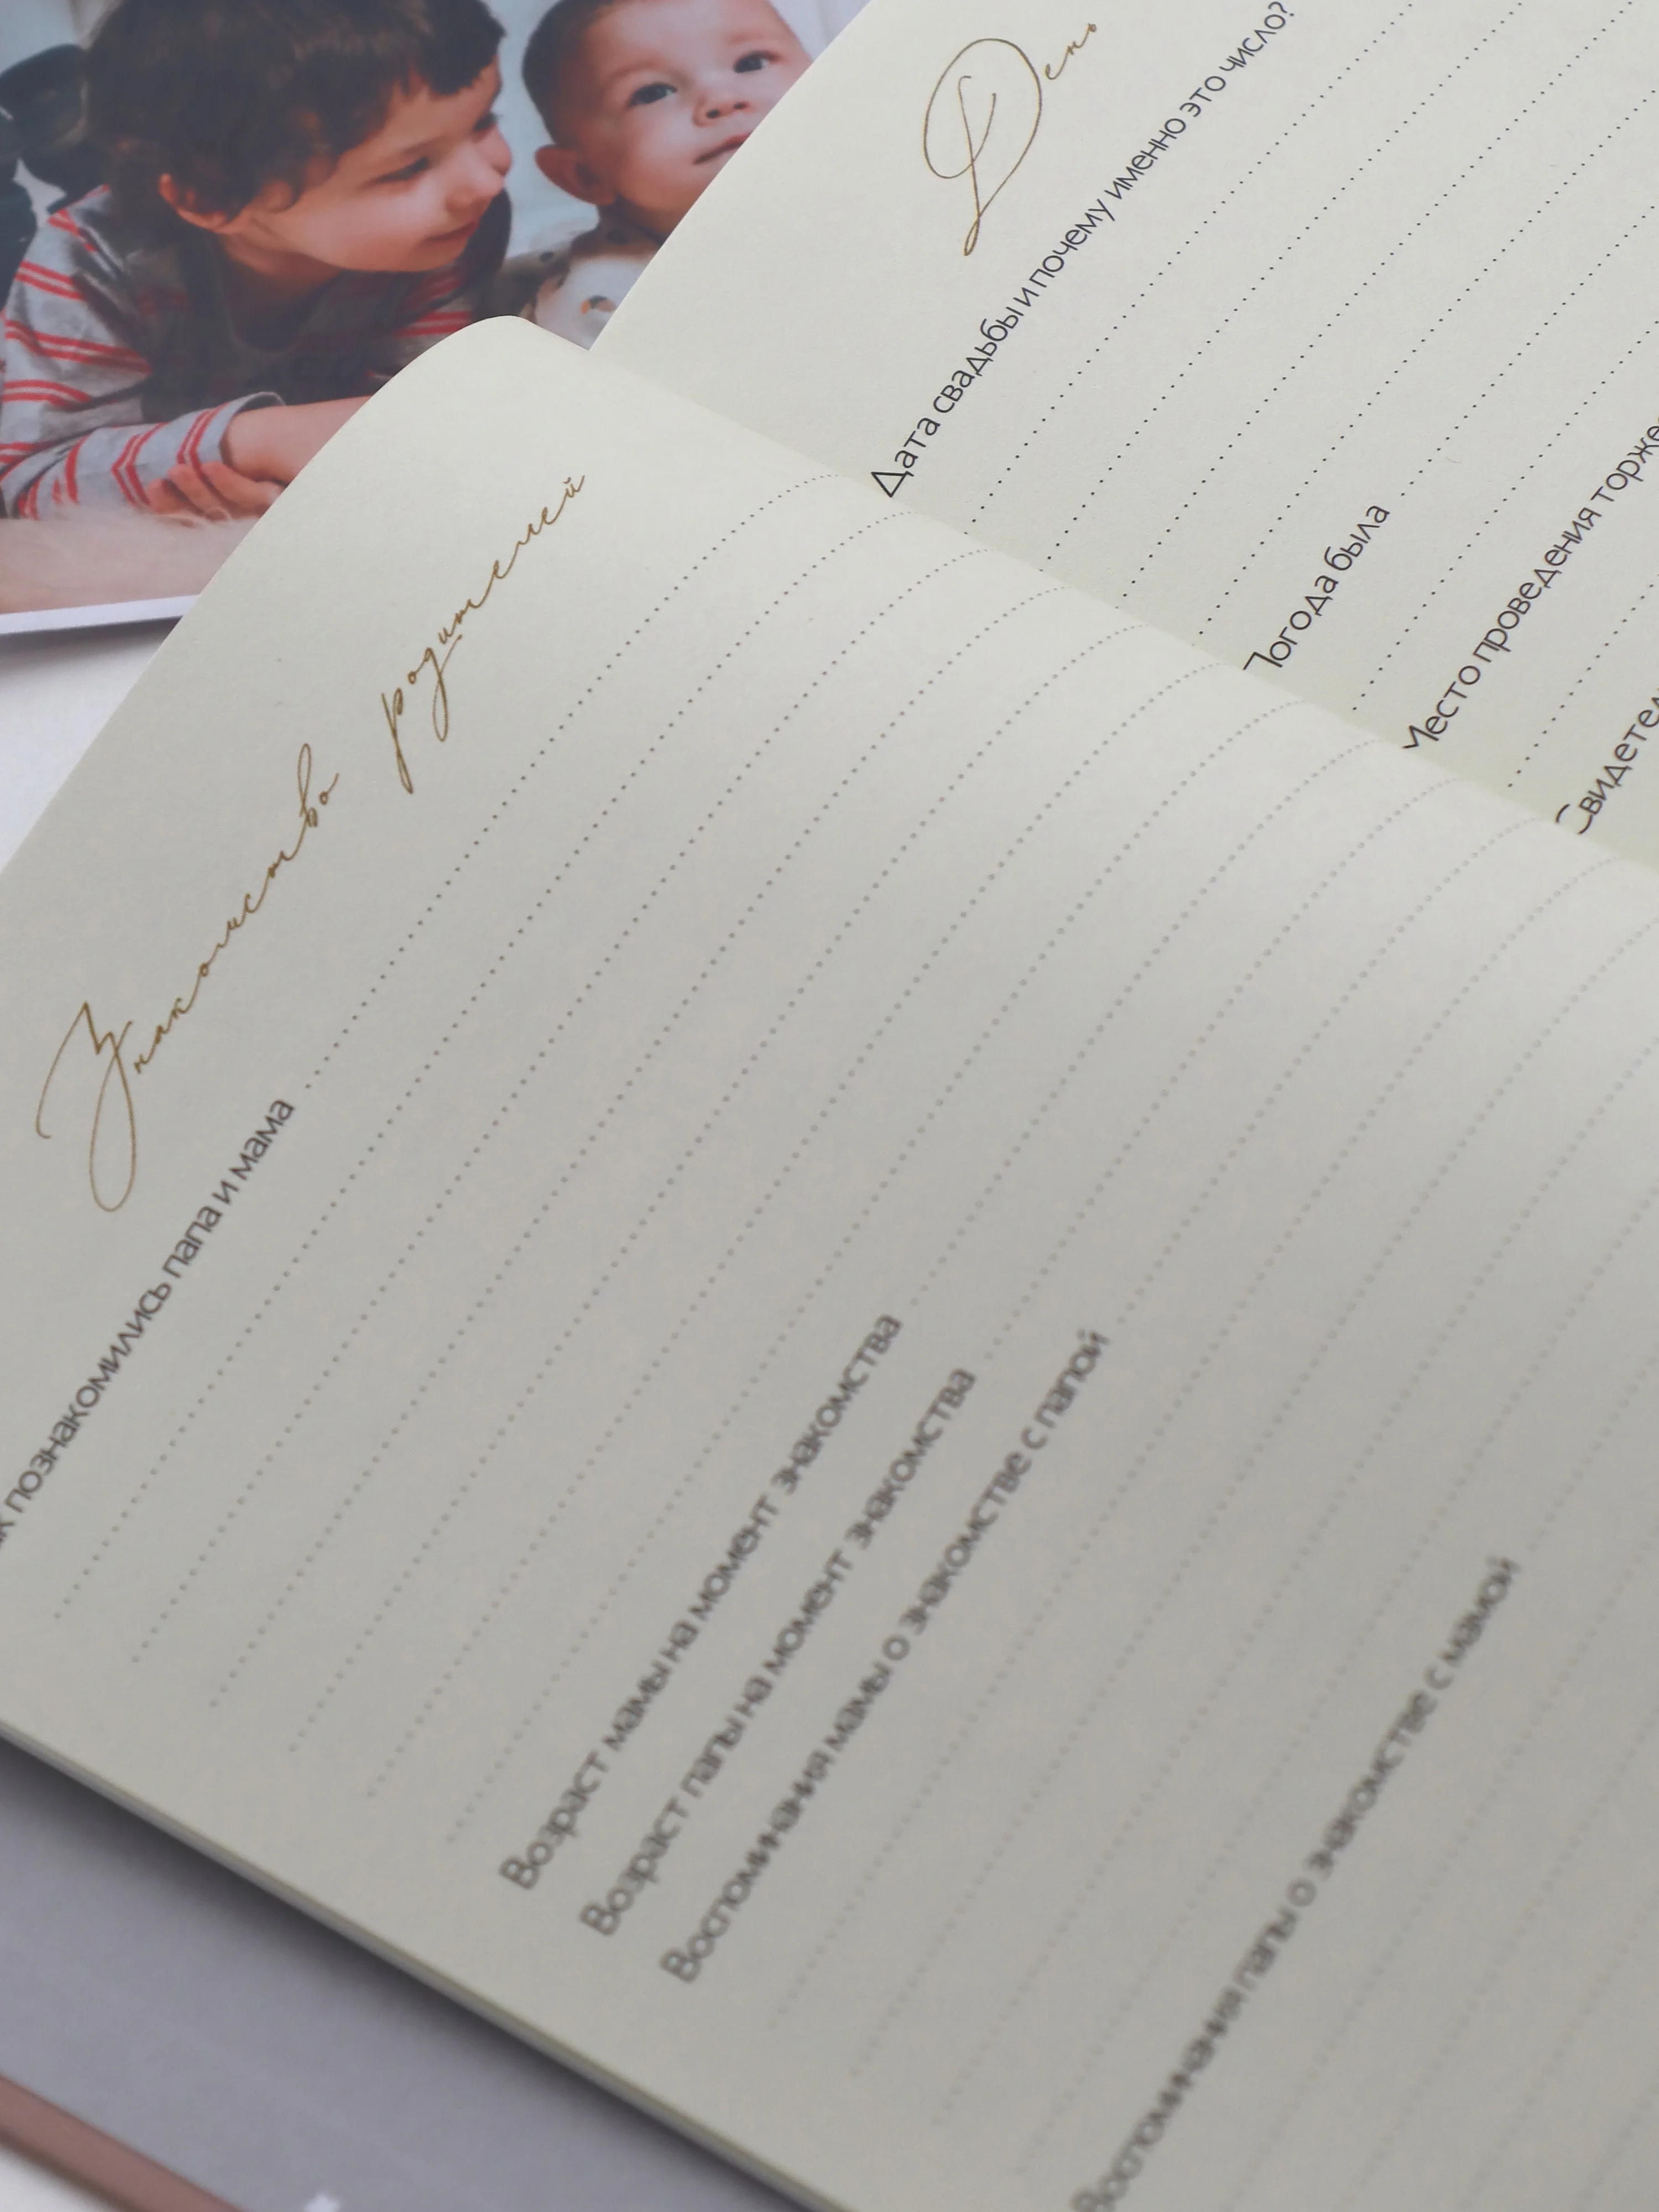 Знакомство родителей
познакомились папа и мама
Возраст мамы на момент знакомства
Возраст папы на момент знакомства
Воспоминания мамы о знакомстве с папой
Воспоминания папы о знакомстве с мамой
День
Дата свадьбы и почему именно это число?
Погода была
Место проведения